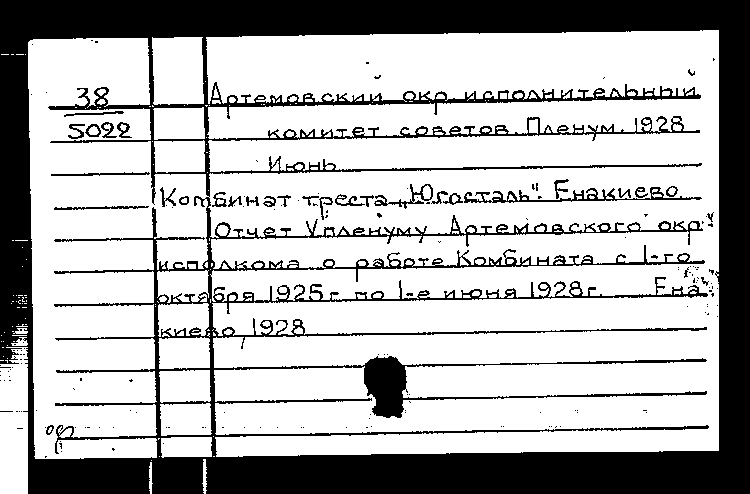 38 Артемовский окр исполнительный
5022 комитет советов. Пленум. 1928
Июнь
Комбинат треста „Югосталь". Енакиево.
Отчет V пленуму Артемовского окр.
исполкома о работе Комбината с 1-го
октября 1925г. по 1-е июня 1928г. Ена
киево, 1928